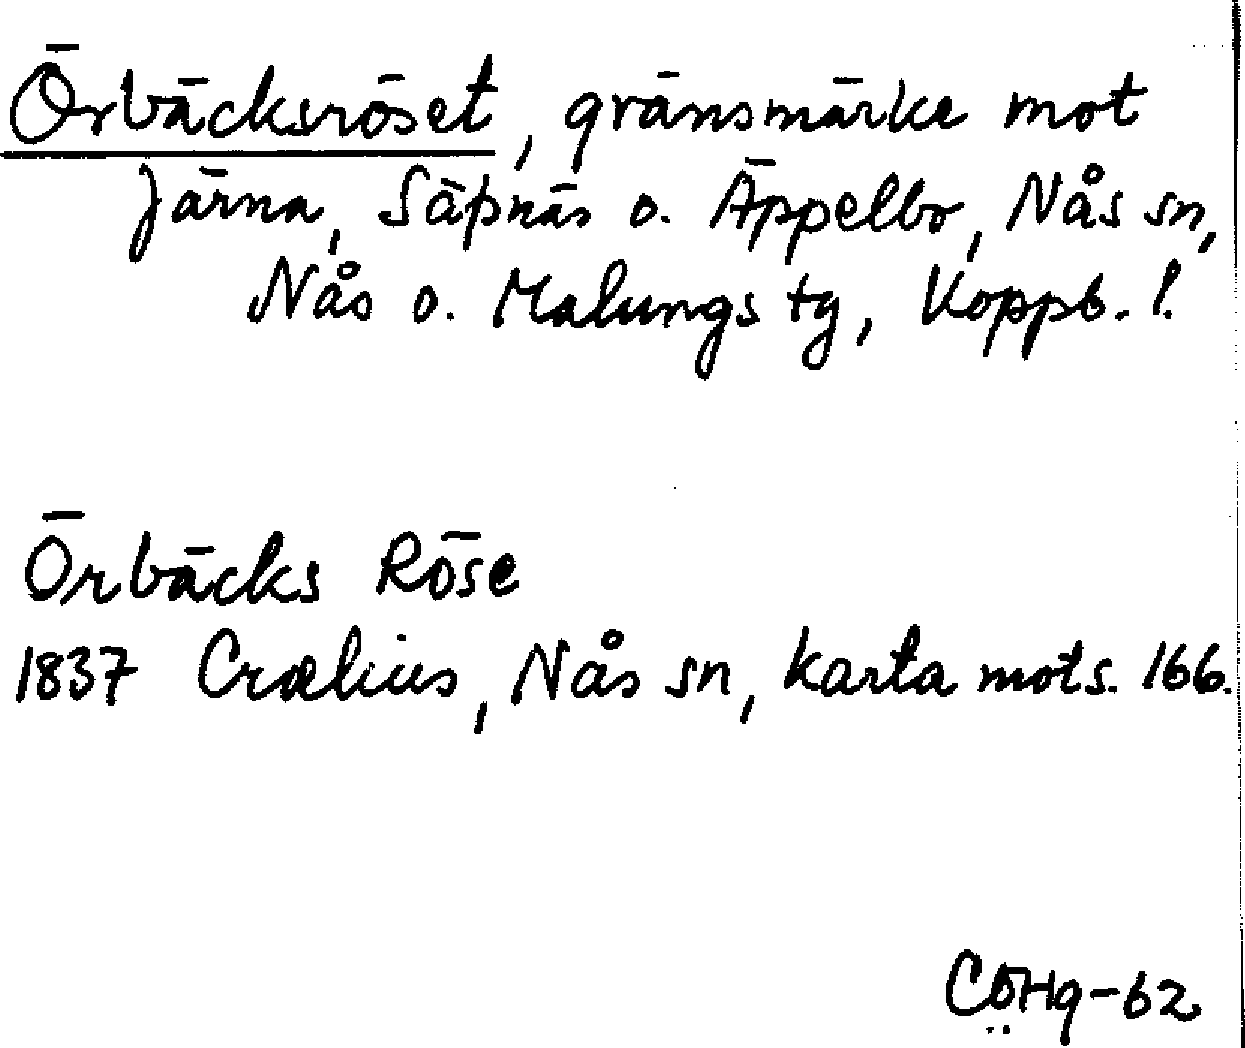 Örbäcksröset, gränsmärke mot
Järna, Säpnäs o. Äppelbo, Nås sn,
Nås o. Malungs tg, Koppb. l.
Örbäcks Röse
1837 Crælius, Nås sn, karta mots. 166.
CÖHg-62